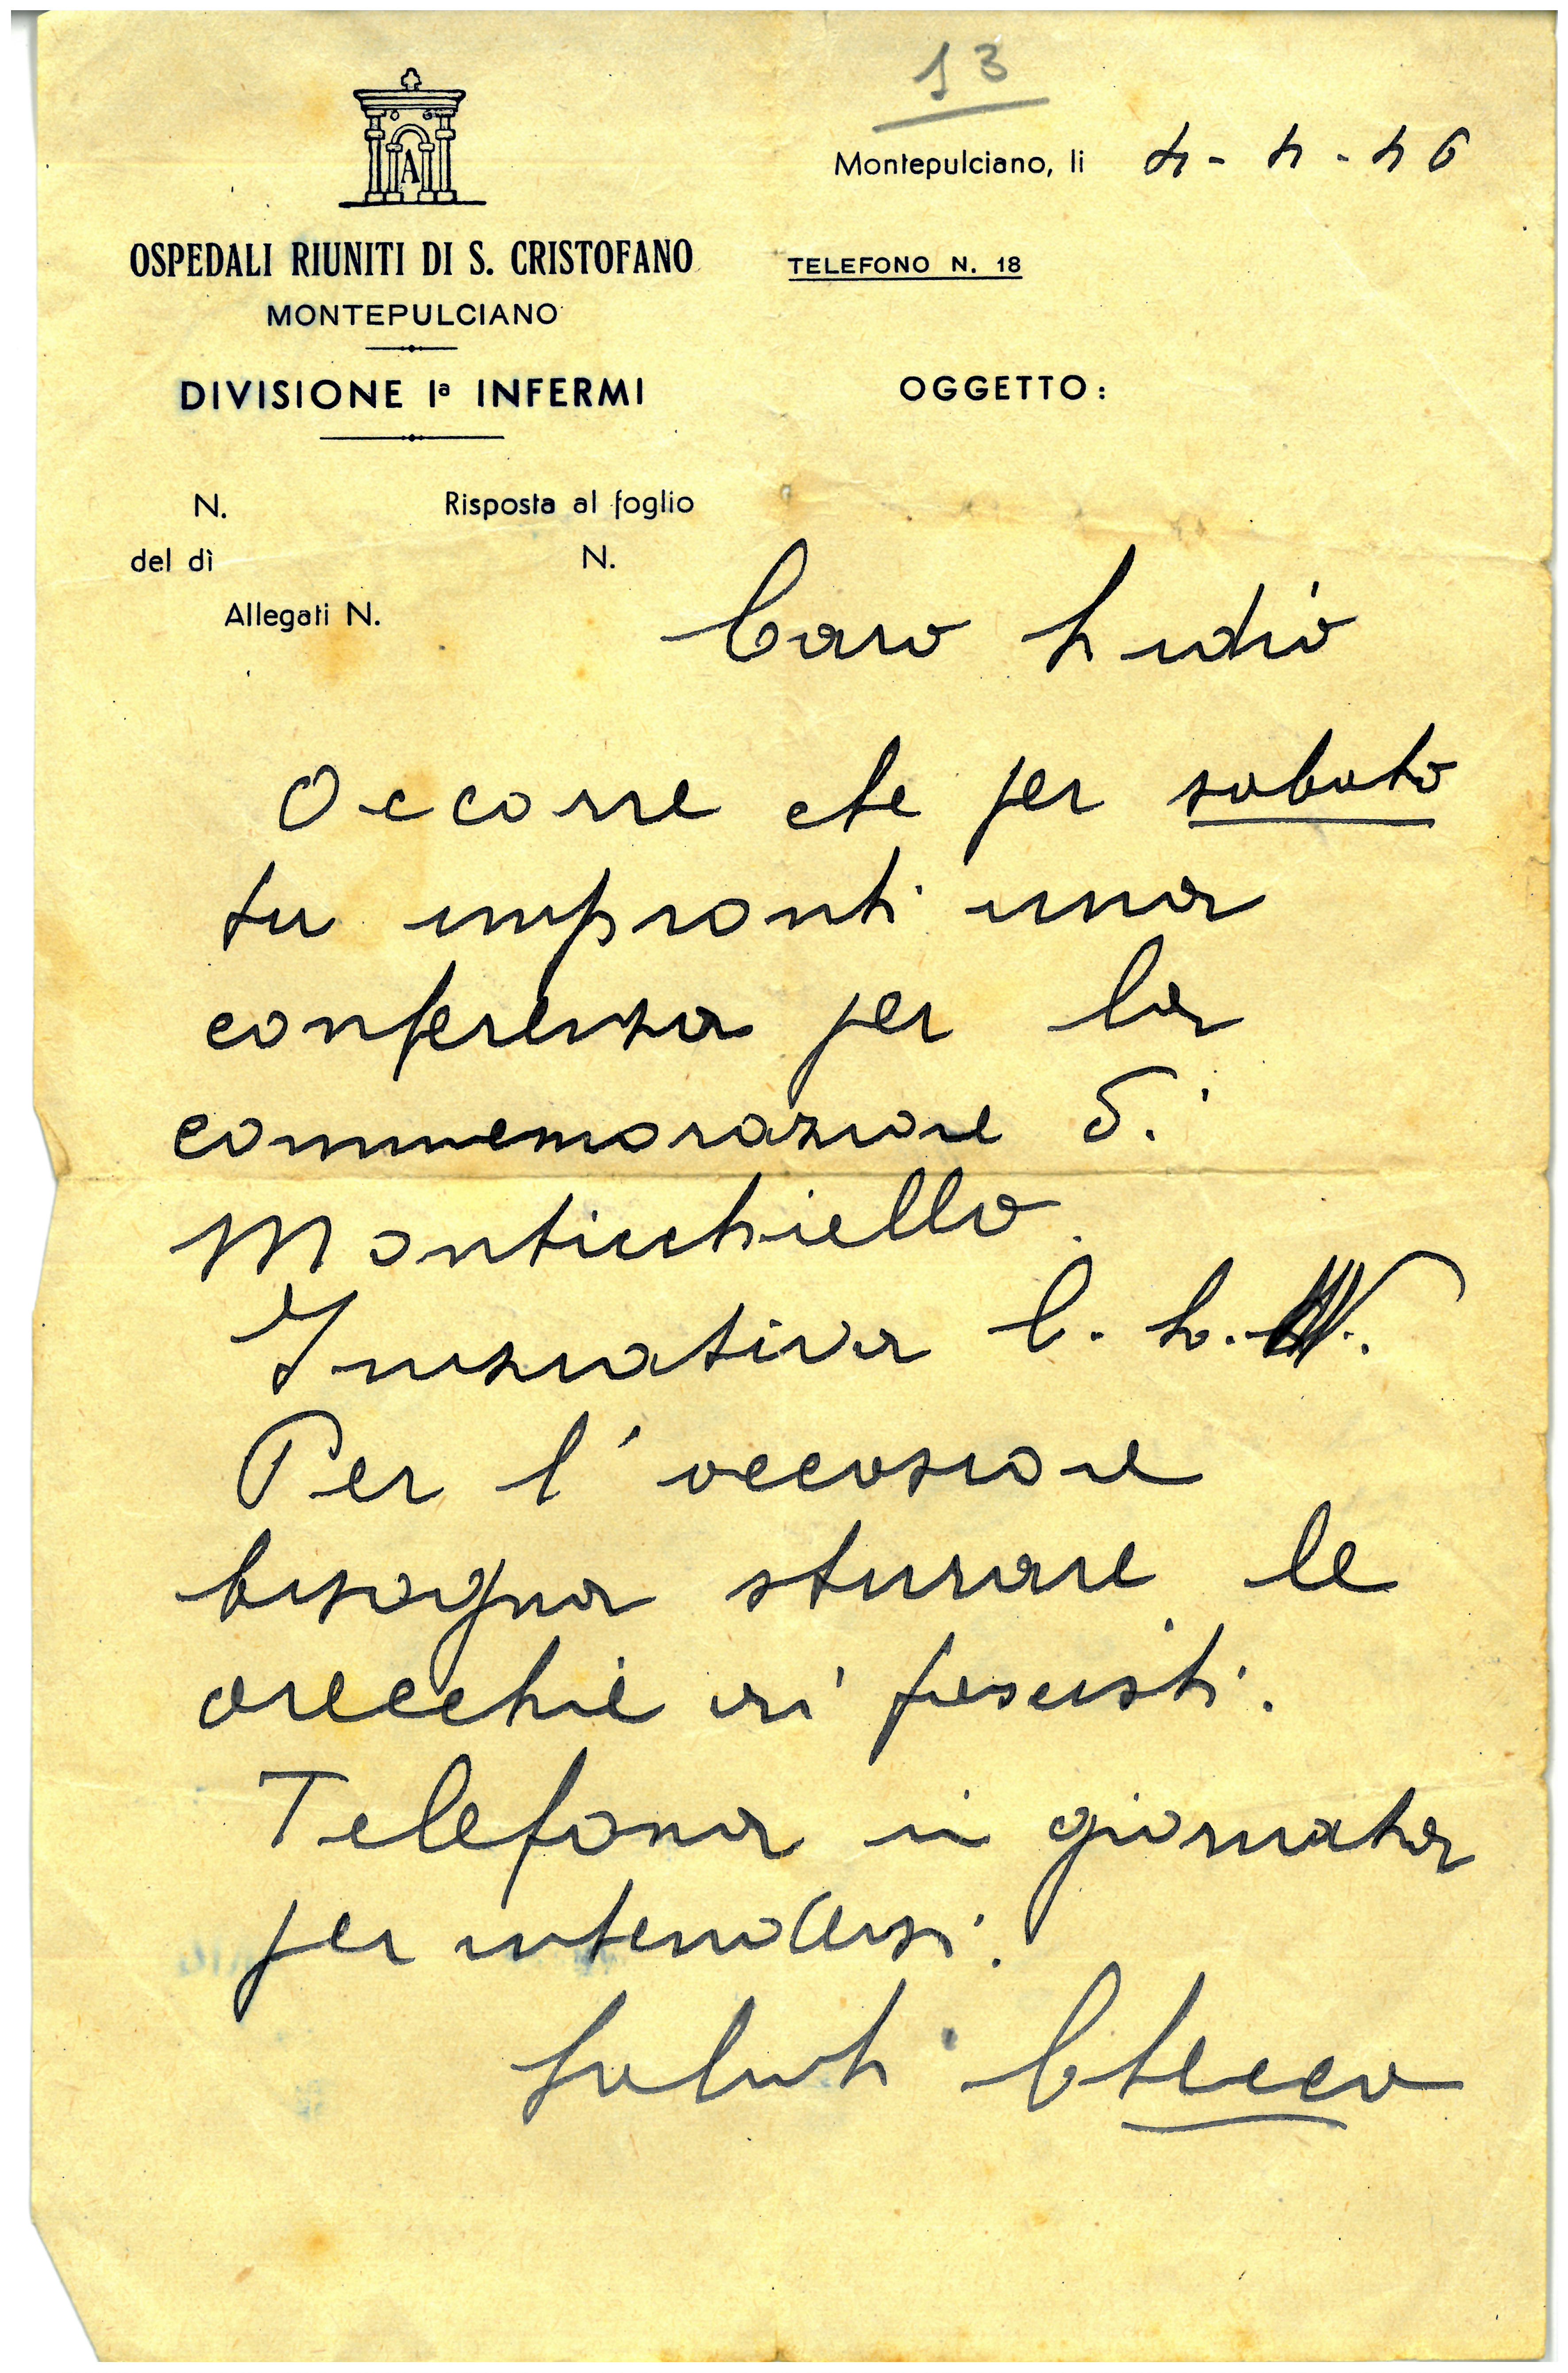 13
Montepulciano, li 4-4-46
A
OSPEDALI RIUNITI DI S. CRISTOFANO
MONTEPULCIANO
TELEFONO N. 18
DIVISIONE Iª INFERMI
OGGETTO:
N. Risposta al foglio
del dì N.
Allegati N.
Caro Lidio
Occorre che per sabato
tu impronti una
conferenza per la
commemorazione di
Monticchiello.
Iniziativa C. L. N.
Per l'occasione
bisogna sturare le
orecchie ai fascisti.
Telefona in giornata
per intendersi.
Saluti Checco